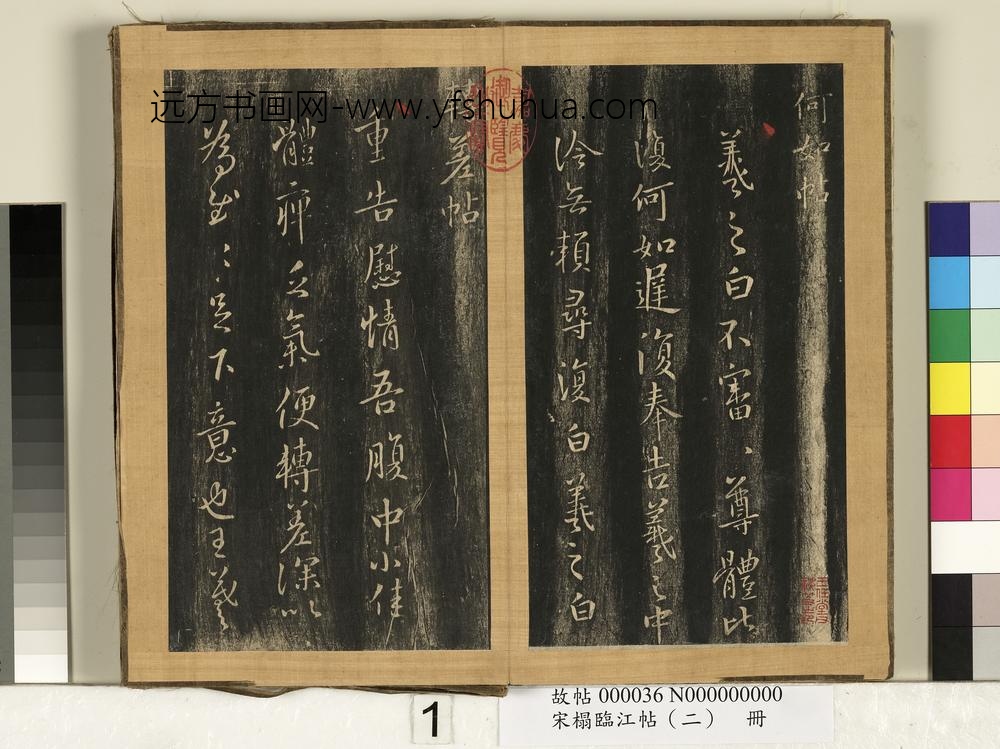 远方书画网-www.yfshuhua.com
何如帖
羲之白不審、尊體比
復何如遲復奉告羲之中
冷無賴尋復白羲之白
差帖
重告慰情吾腹中小佳
體痾乏氣便轉差深以
為慰〻足下意也王羲之
1
故帖 000036 N000000000
宋榻臨江帖(二) 冊